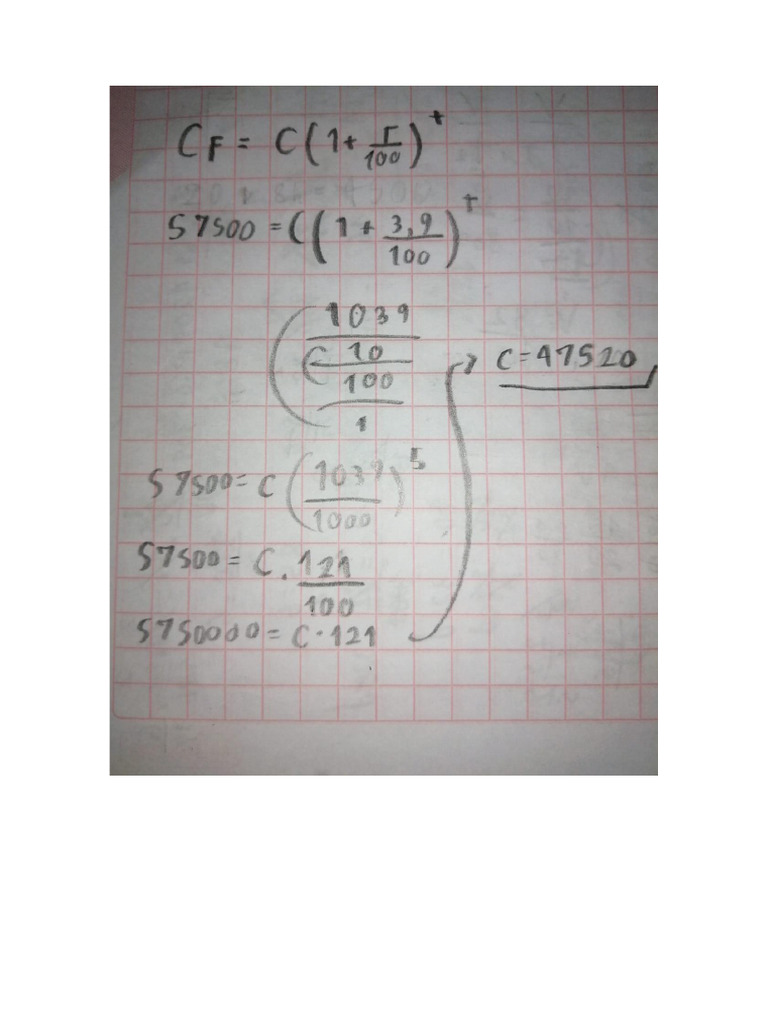 CF = C(1+ r/100)^t
57500 = C(1 + 3,9/100)^t
1039
10
100
1
C=47520
57500= C (1039/1000)^5
57500 = C. 121/100
5750000= C·121